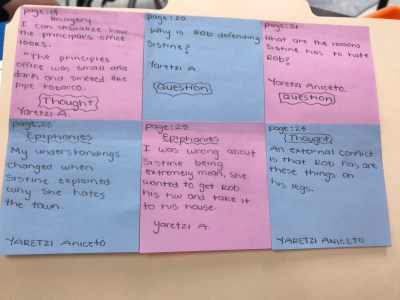 page:19
Imagery
I can visualize how
the principal's office
looks.
"The principles
office was small and
dark and smelled like
pipe tobacco.
Thought
Yaretzi A.
page:20
Why is Rob defending
Sistine?
Yaretzi A
Question
page:21
What are the reasons
Sistine has to hate
Rob?
Yaretzi Aniceto.
Question
page:25
Epiphanies
My understandings
changed when
Sistine explained
why she hates
the town.
YARETZI ANICETO
page:25
Epiphanies
I was wrong about
Sistine being
extremely mean, She
wanted to get Rob
his hw and take it
to his house.
Yaretzi A
page:24
Thought
An external conflict
is that Rob has are
these things on
his legs.
YARETZI ANICETO